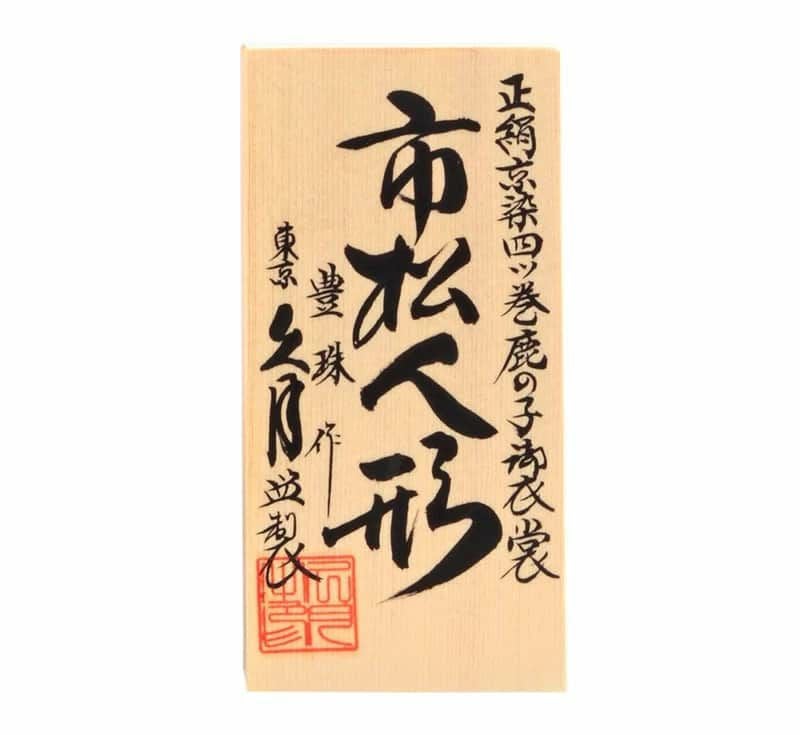 正絹京染四ツ巻鹿の子御衣裳
市松人形
豊珠作
東京久月監製